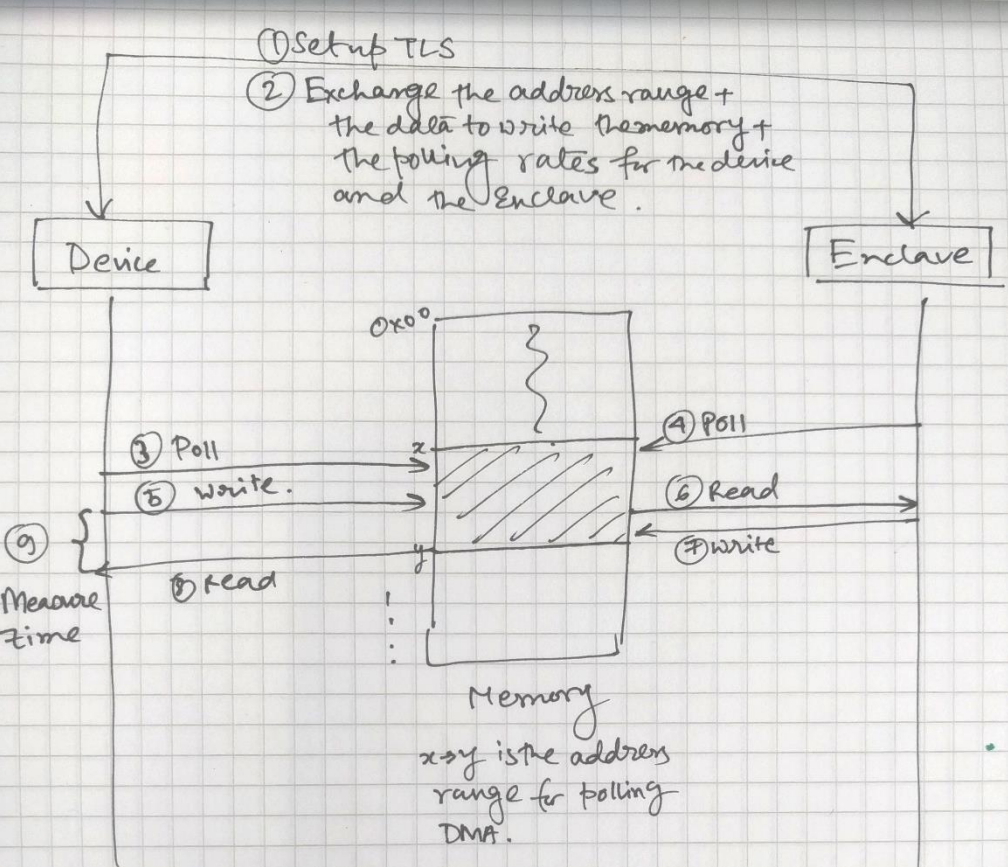 ① Setup TLS
② Exchange the address range +
the data to write the memory +
the polling rates for the device
and the Enclave.
Device
Enclave
0x00
③ Poll
x
④ Poll
⑤ write.
⑥ Read
⑨
y
⑦ write
⑧ Read
Measure
time
Memory
x→y is the address
range for polling
DMA.